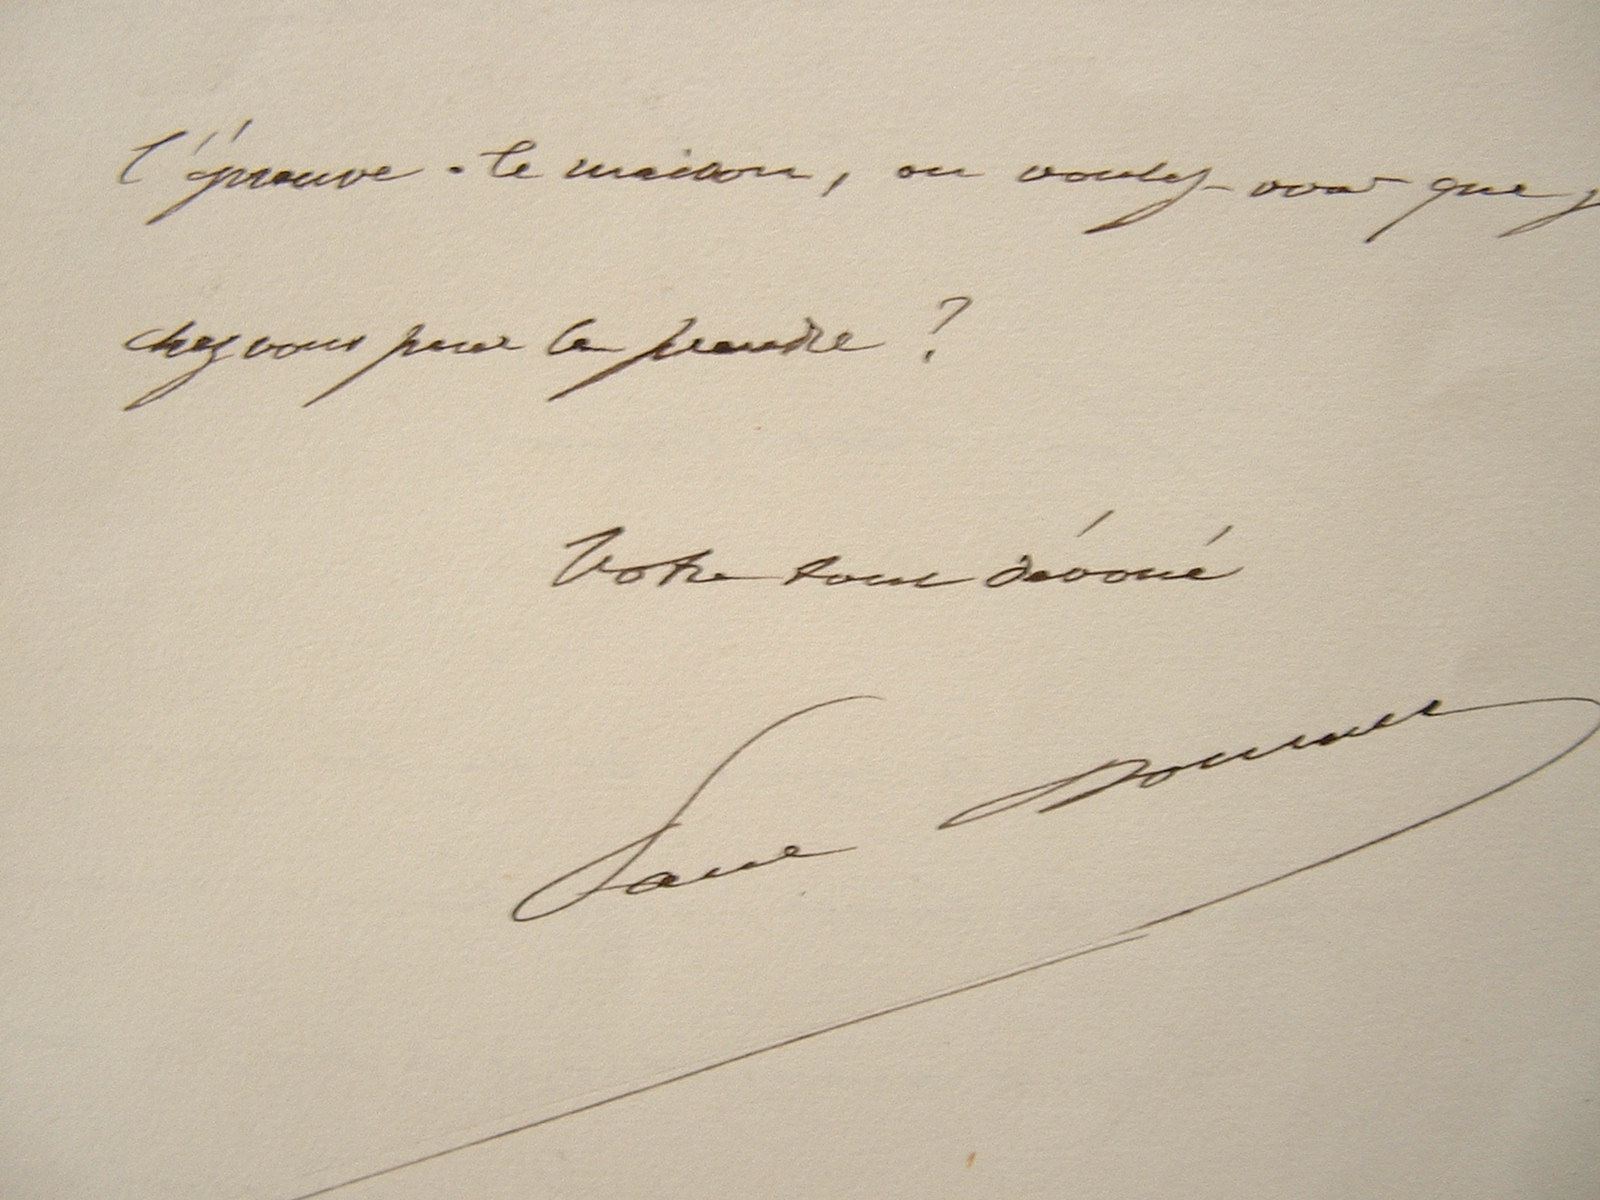 l'épreuve - le maison, ou voulez-vous que j
chez vous pour la prendre ?
Votre tout dévoué